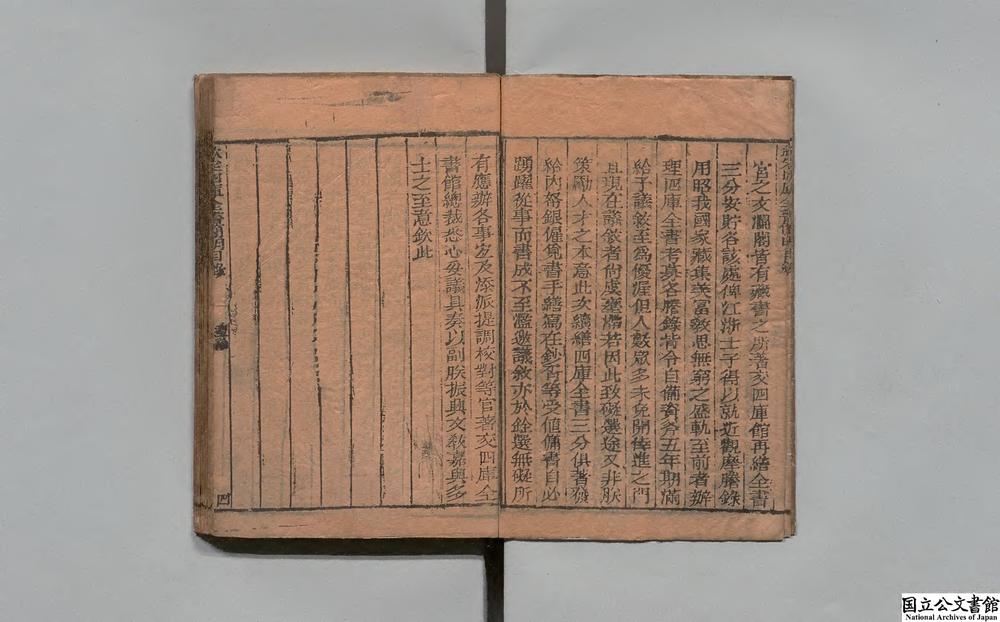 宫之文瀾閣皆有藏書之所著交四庫館再繕全書
三分安貯各該處俾江浙士子得以就近觀摩謄錄
用昭我國家藏集美富敎思無窮之盛軌至前者辦
理四庫全書考彙各謄錄皆令自備資斧五年期滿
給予議敘至爲優渥但人數眾多未免開倖進之門
且現在議敘者尙虞壅滯若因此致礙選途又非朕
策勵人才之本意此次續繕四庫全書三分俱著發
給內帑銀僱覓書手繕寫在鈔胥等受値傭書自必
踴躍從事而書成不至濫邀議敘亦於銓選無礙所
有應辦各事宜及添派提調校對等官著交四庫全
書館總裁悉心妥議具奏以副朕振興文敎嘉與多
士之至意欽此
欽定四庫全書簡明目錄
四
国立公文書館
National Archives of Japan